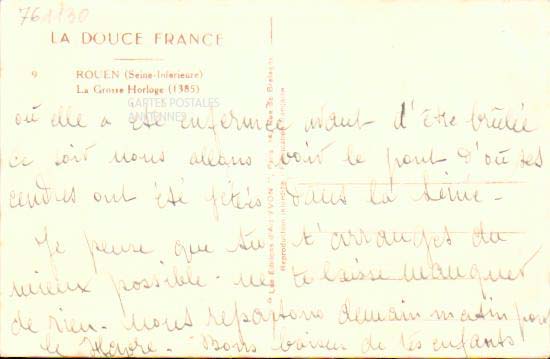 761/30
LA DOUCE FRANCE
9 ROUEN (Seine-Inférieure)
La Grosse Horloge (1385)
CARTES POSTALES
ANCIENNES
où elle a été enfermée avant d'être brûlée
ce soir nous allons voir le pont d'où ses
cendres ont été jetées dans la Seine -
Je pense que tu t'arranges du
mieux possible - ne te laisse manquer
de rien - Nous repartons demain matin pour
le Havre - Bons baisers de tes enfants
Les Editions d'Art YVON
Reproduction interdite